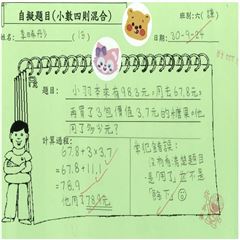 自擬題目(小數四則混合)
班別:六(謙)
姓名:
日期:30-9-24
題目:小羽本來有98.3元,用去67.8元,
再買了3包價值3.7元的糖果。他
用了多少元?
計算過程:
67.8+3×3.7
=67.8+11.1
=78.9
他用了78.9元
常犯錯誤:
沒有看清楚題目
是用了,並不是
餘下